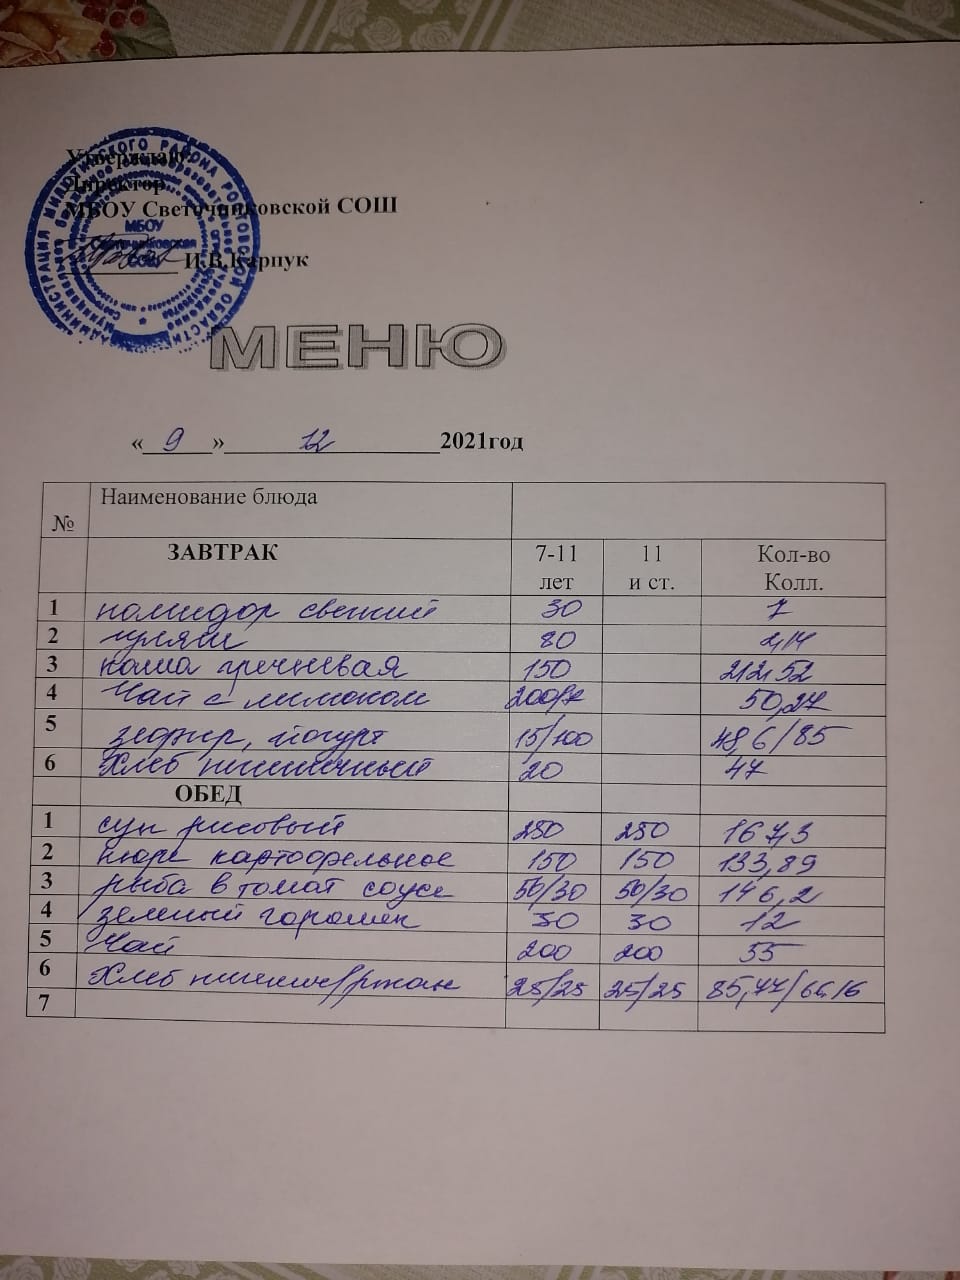 Утверждаю:
Директор
МБОУ Светочниковской СОШ
И.В.Карпук
АДМИНИСТРАЦИЯ МИЛЮТИНСКОГО РАЙОНА РОСТОВСКОЙ ОБЛАСТИ
МБОУ
Светочниковская
СОШ
МЕНЮ
« 9 » 12 2021год
№ Наименование блюда
ЗАВТРАК 7-11 лет 11 и ст. Кол-во Колл.
1 помидор свежий 30 7
2 гуляш 80 214
3 каша гречневая 150 212,52
4 Чай с лимоном 200/7 50,27
5 зефир, йогурт 15/100 48,6/85
6 Хлеб пшеничный 20 47
ОБЕД
1 суп рисовый 250 250 167,3
2 пюре картофельное 150 150 133,89
3 рыба в томат соусе 50/30 50/30 146,2
4 зеленый горошек 30 30 12
5 Чай 200 200 55
6 Хлеб пшенич/ржан 25/25 25/25 85,77/66,16
7